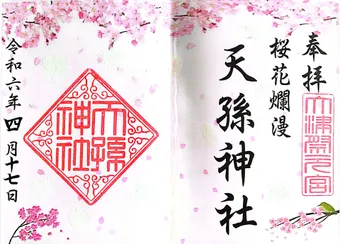 奉拝
大津祭元宮
桜花爛漫
天孫神社
天孫神社
令和六年四月十七日